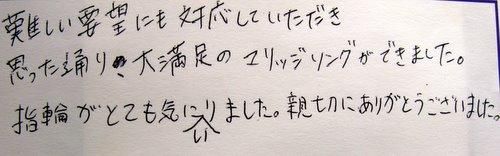 難しい要望にも対応していただき
思った通り、大満足のマリッジリングができました。
指輪がとても気に入りました。親切にありがとうございました。